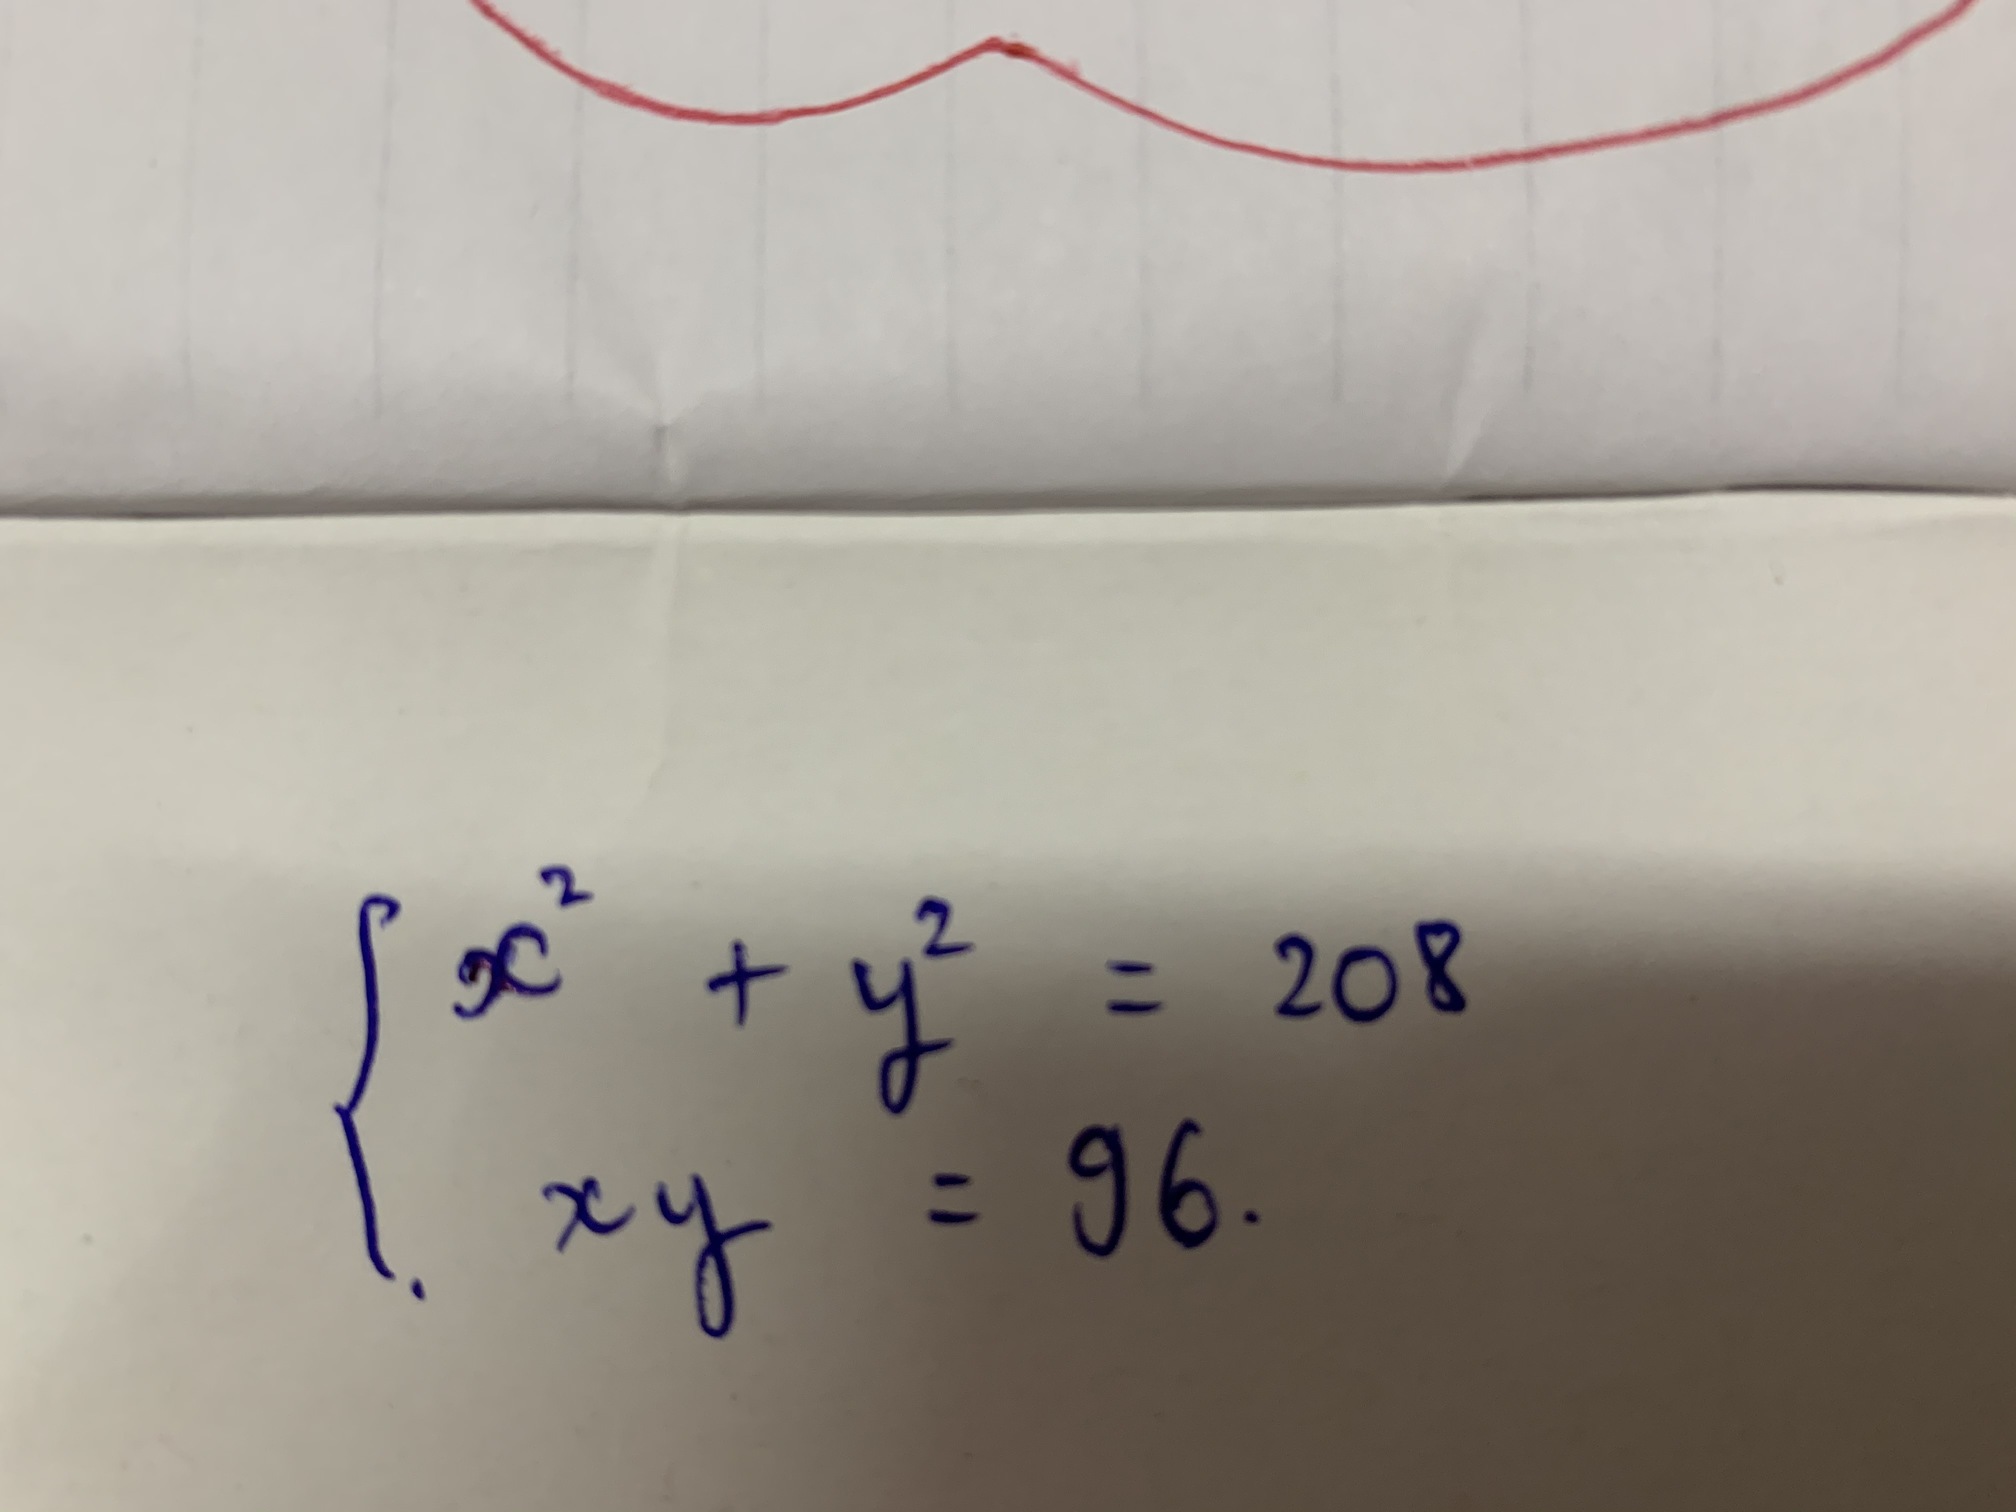 x² + y² = 208
xy = 96.